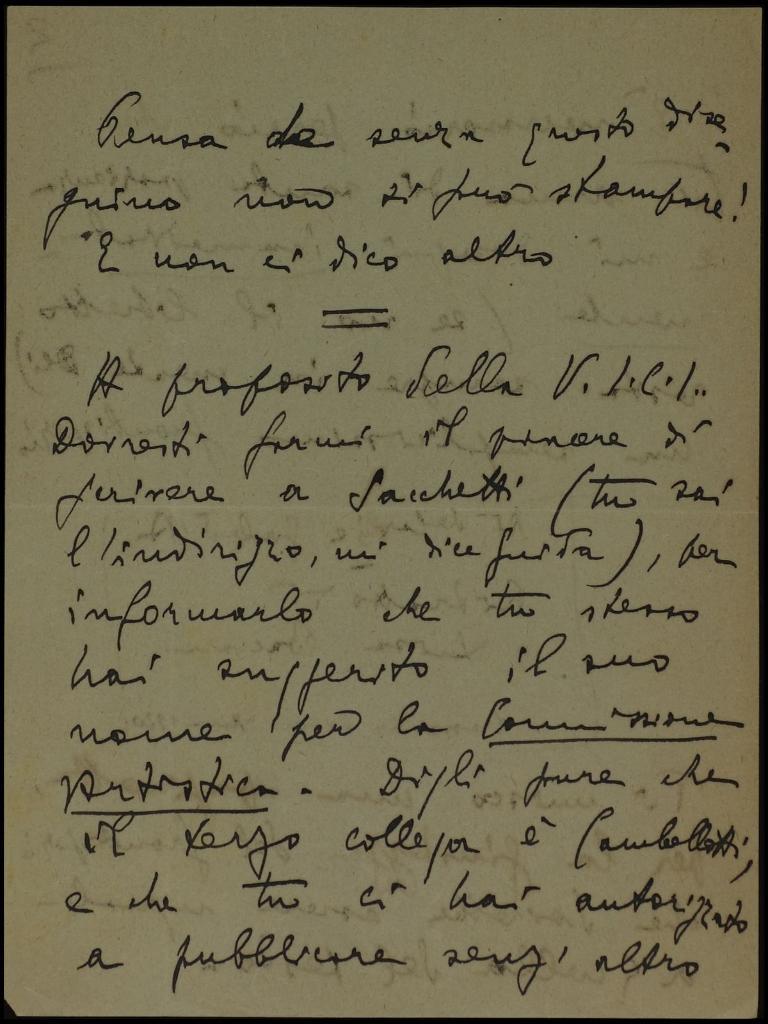 Pensa che senza questo dise-
gnino non si può stampare!
E non ci dico altro
A proposito della V.I.C.I..
Dovresti farmi il piacere di
scrivere a Sacchetti (tu sai
l'indirizzo, mi dice Guida), per
informarlo che tu stesso
hai suggerito il suo
nome per la Commissione
Artistica. Digli pure che
il terzo collega è Cambellotti,
e che tu ci hai autorizzato
a pubblicare senz'altro